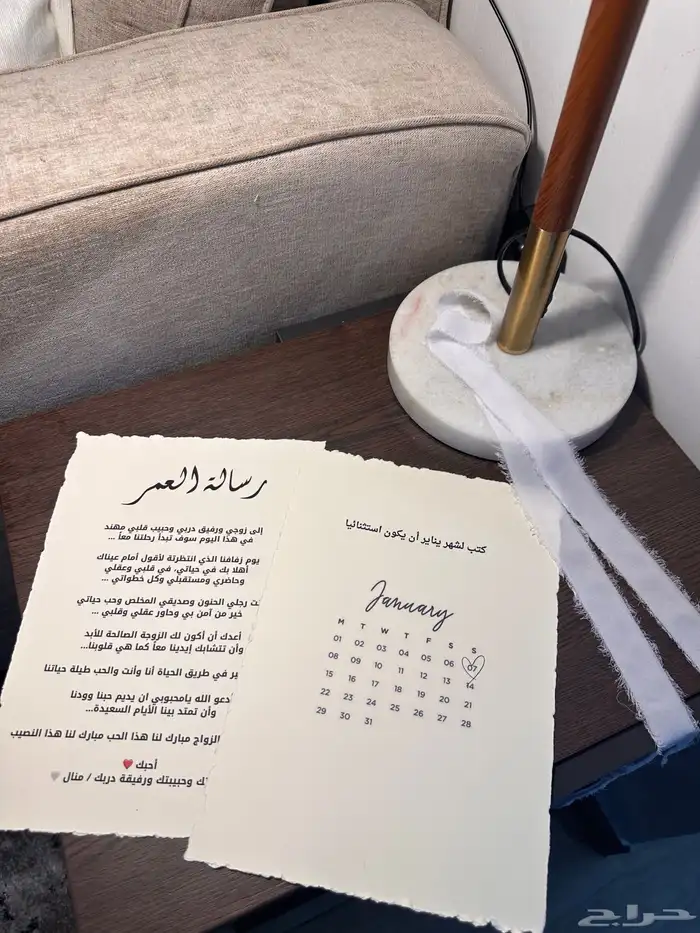 رسالة العمر
إلى زوجي ورفيق دربي وحبيب قلبي مهند
في هذا اليوم سوف تبدأ رحلتنا معاً ...
يوم زفافنا الذي انتظرتة لأقول أمام عيناك
أهلا بك في حياتي، في قلبي وعقلي
وحاضري ومستقبلي وكل خطواتي ...
رجلي الحنون وصديقي المخلص وحب حياتي
خير من آمن بي وحاور عقلي وقلبي ...
أعدك أن أكون لك الزوجة الصالحة للأبد
وأن تتشابك إيدينا معاً كما هي قلوبنا...
في طريق الحياة أنا وأنت والحب طيلة حياتنا
الله يامحبوبي ان يديم حبنا وودنا
وأن تمتد بينا الأيام السعيدة...
الزواج مبارك لنا هذا الحب مبارك لنا هذا النصيب
أحبك ❤️
وحبيبتك ورفيقة دربك / منال 🤍
كتب لشهر يناير أن يكون استثنائيا
January
M T W T F S S
01 02 03 04 05 06 07
08 09 10 11 12 13 14
15 16 17 18 19 20 21
22 23 24 25 26 27 28
29 30 31
حراج